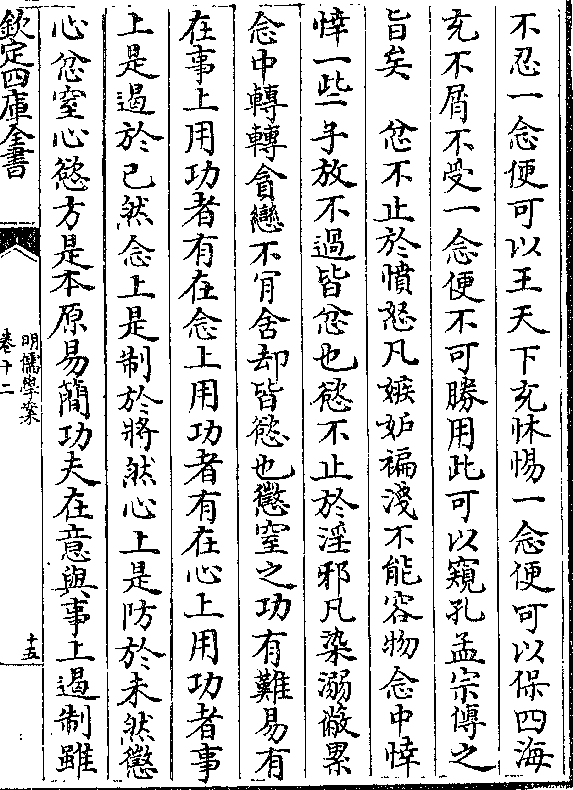 不忍一念便可以王天下充怵惕一念便可以保四海
充不屑不受一念便不可勝用此可以窺孔孟宗傳之
旨矣　忿不止於憤怒凡嫉妬褊淺不能容物念中悻
悻一些子放不過皆忿也慾不止於淫邪凡染溺蔽累
念中轉轉貪戀不肎舍却皆慾也懲窒之功有難易有
在事上用功者有在念上用功者有在心上用功者事
上是遏於已然念上是制於將然心上是防於未然懲
心忿窒心慾方是本原易簡功夫在意與事上遏制雖
欽定四庫全書
明儒學案
卷十二
十五